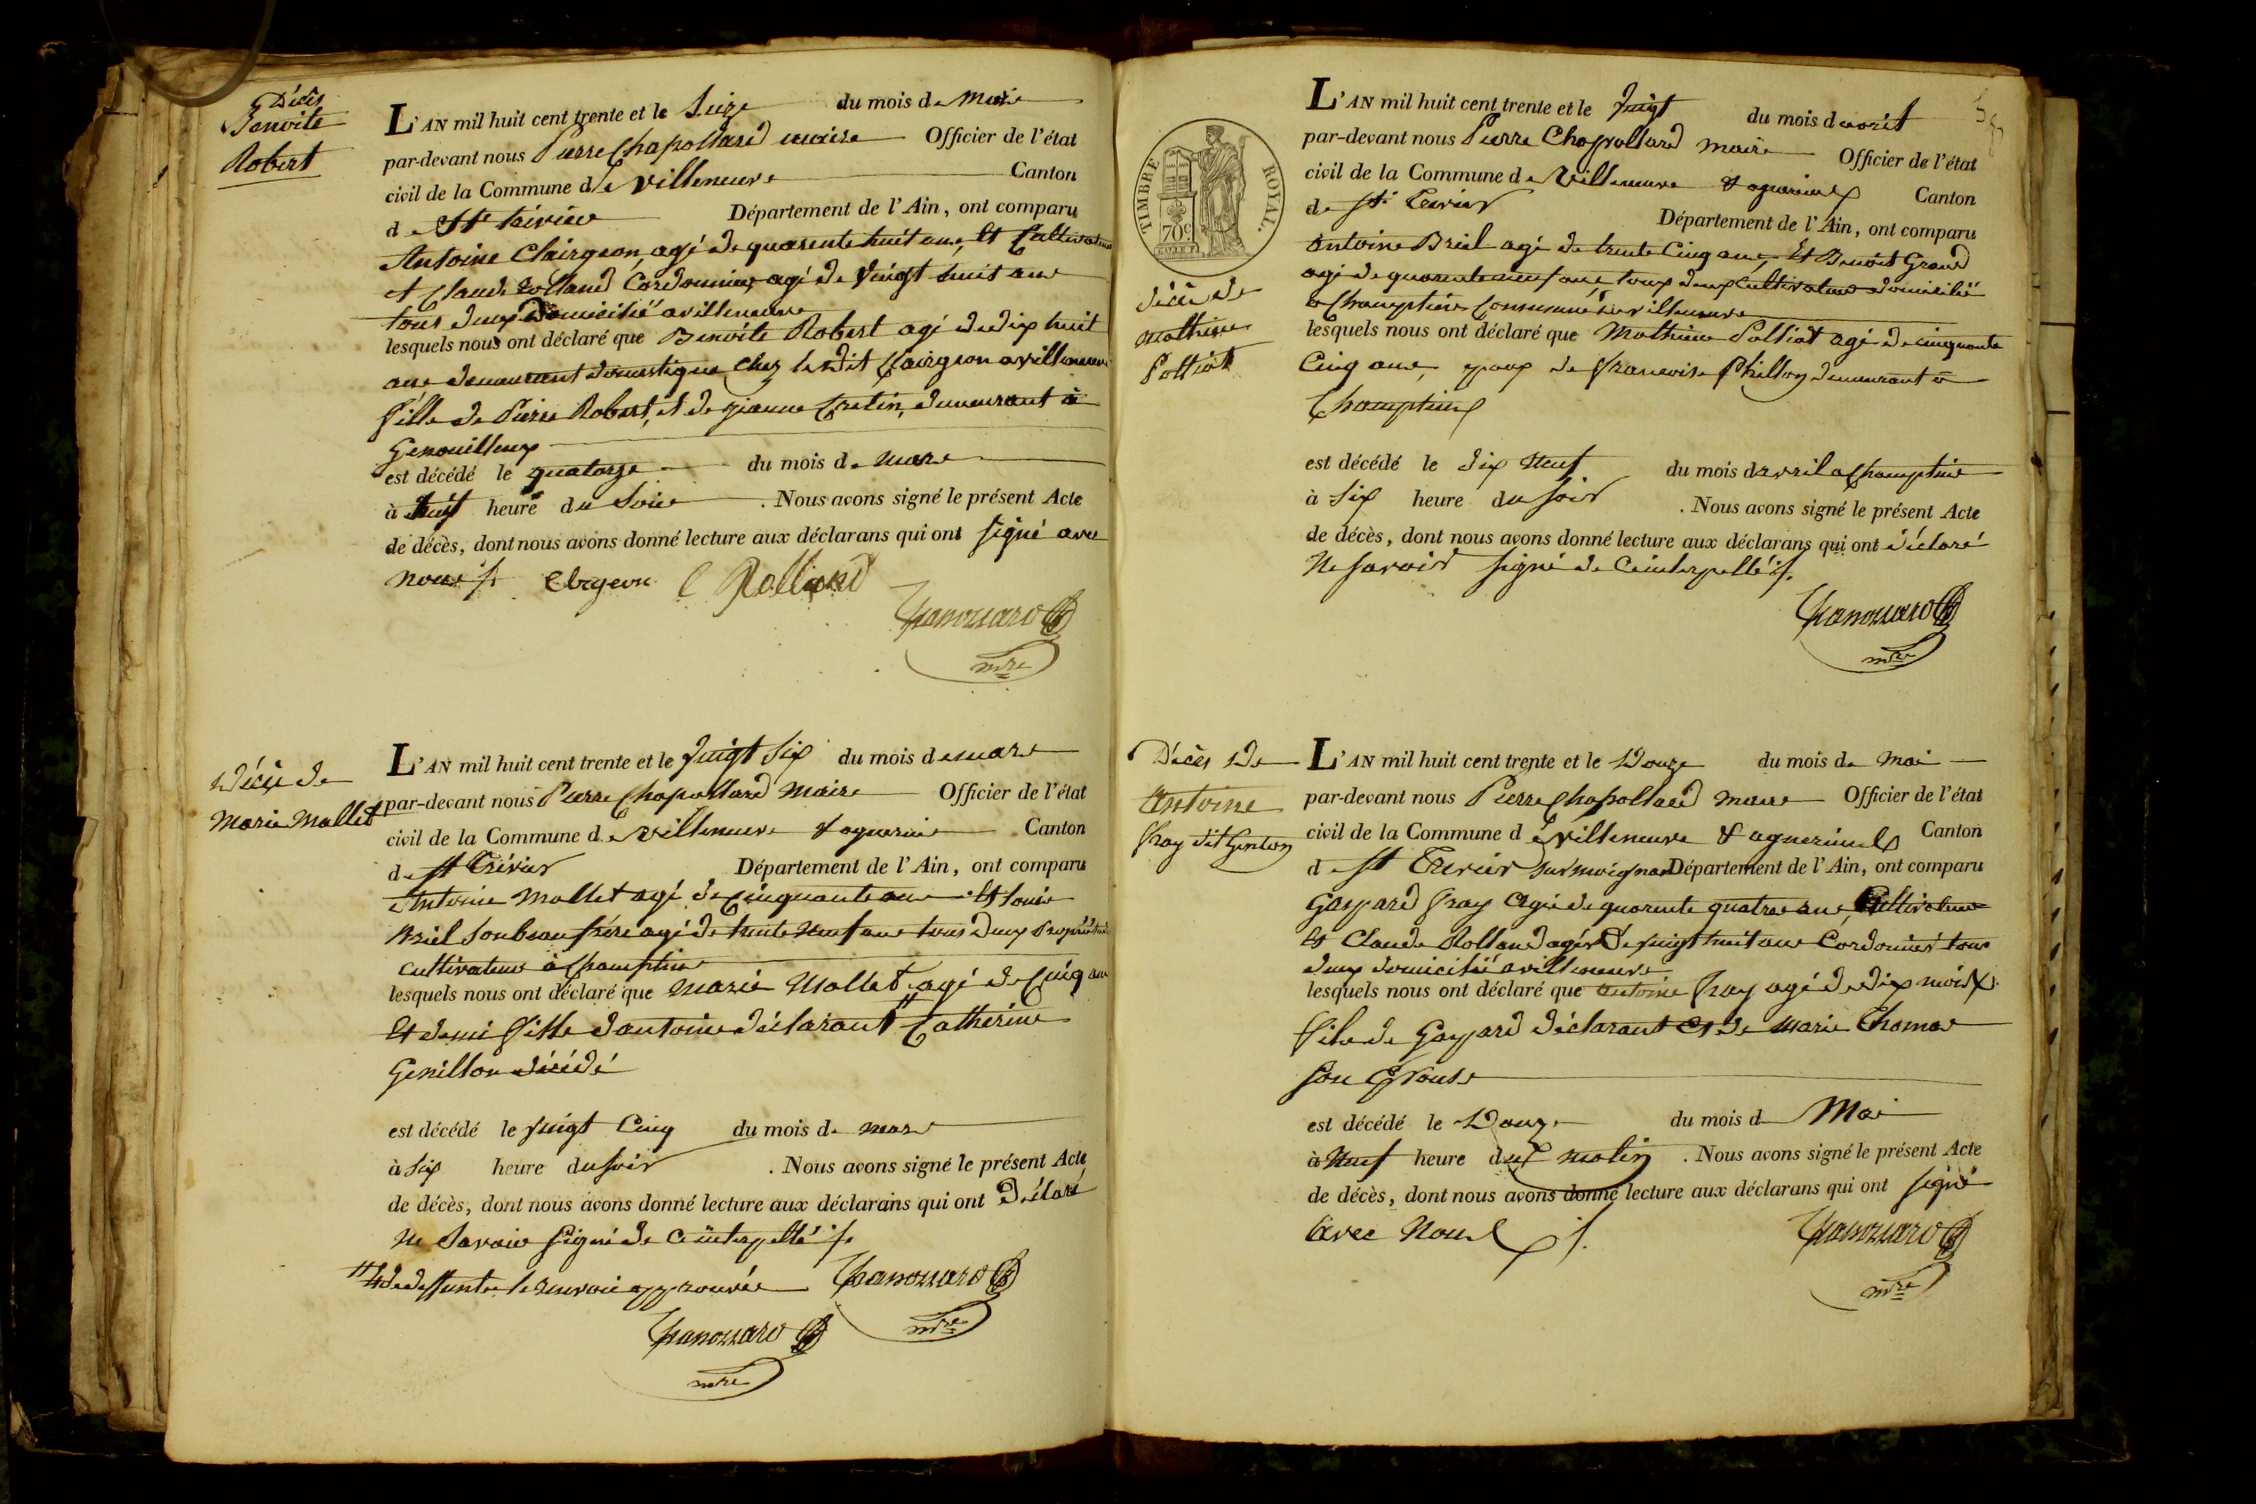 Décès
Benoite
Robert
L'AN mil huit cent trente et le Seize du mois de Mars
par-devant nous Pierre Chapollard maire Officier de l'état
civil de la Commune de Villeneuve Canton
de St trivier Département de l'Ain, ont comparu
Antoine Clairgeon, agé de quarente huit ans, Et Cultivateur
et Claude Rolland Cordonnier, agé de Vingt huit ans
tous deux Domicilié a villeneuve
lesquels nous ont déclaré que Benoite Robert agé de dix huit
ans demeurant domestique chez le dit Clairgeon a villeneuve
fille de Pierre Robert, et de jeanne Cretin, demeurant à
Genouilleux
est décédé le quatorze du mois de mars
à huit heure du Soir . Nous avons signé le présent Acte
de décès, dont nous avons donné lecture aux déclarans qui ont signé avec
nous Clergeon C Rolland
mre
Décès de
Marie Mallet
L'AN mil huit cent trente et le vingt Six du mois de mars
par-devant nous Pierre Chapollard Maire Officier de l'état
civil de la Commune de Villeneuve & agnerin Canton
de St Trévier Département de l'Ain, ont comparu
Antoine Mallet agé de Cinquante ans Et Louis
Briel Son beau frére agé de trente Neuf ans tous deux Propriétaire
cultivateur à Champtin
lesquels nous ont déclaré que Marie Mallet agé de Cinq ans
Et demi fille d'antoine déclarant # Catherine
Genillon décédé
est décédé le vingt Cinq du mois de mars
à Six heure du soir . Nous avons signé le présent Acte
de décès, dont nous avons donné lecture aux déclarans qui ont Déclaré
Ne Savoir signé de ce interpellé
# & de deffunte le renvoi approuvée
mre
mre
TIMBRE ROYAL.
décès de
mathieu
Polliat
L'AN mil huit cent trente et le vingt du mois d'avril
par-devant nous Pierre Chapollard maire Officier de l'état
civil de la Commune de Villeneuve & agnerins Canton
de St Trevier Département de l'Ain, ont comparu
Antoine Briel agé de trente Cinq ans, Et Benoit Grand
agé de quarente neuf ans, tous deux Cultivateur domicilié
a Champtin Commune de villeneuve
lesquels nous ont déclaré que Mathieu Polliat agé de cinquante
Cinq ans, epoux de francoise Phillon demeurant à
Champtin
est décédé le dix Neuf du mois d'avril a Champtin
à Six heure du soir . Nous avons signé le présent Acte
de décès, dont nous avons donné lecture aux déclarans qui ont déclaré
Ne savoir signé de Ce interpellé
mre
Décès De
Antoine
fray dit Genton
L'AN mil huit cent trente et le Douze du mois de Mai
par-devant nous Pierre Chapollard maire Officier de l'état
civil de la Commune de villeneuve & agnerins Canton
de St Trevier sur moignan Département de l'Ain, ont comparu
Gaspard fray Agé de quarente quatre ans, Cultivateur
Et Claude Rolland agé de vingt huit ans Cordonier tous
deux domicilié a villeneuve
lesquels nous ont déclaré que Antoine fray agé de dix mois
fils de Gaspard déclarant Et de Marie Thomas
son Epouse
est décédé le Douze du mois d Mai
à Neuf heure du matin . Nous avons signé le présent Acte
de décès, dont nous avons donné lecture aux déclarans qui ont signé
Avec Nous
mre